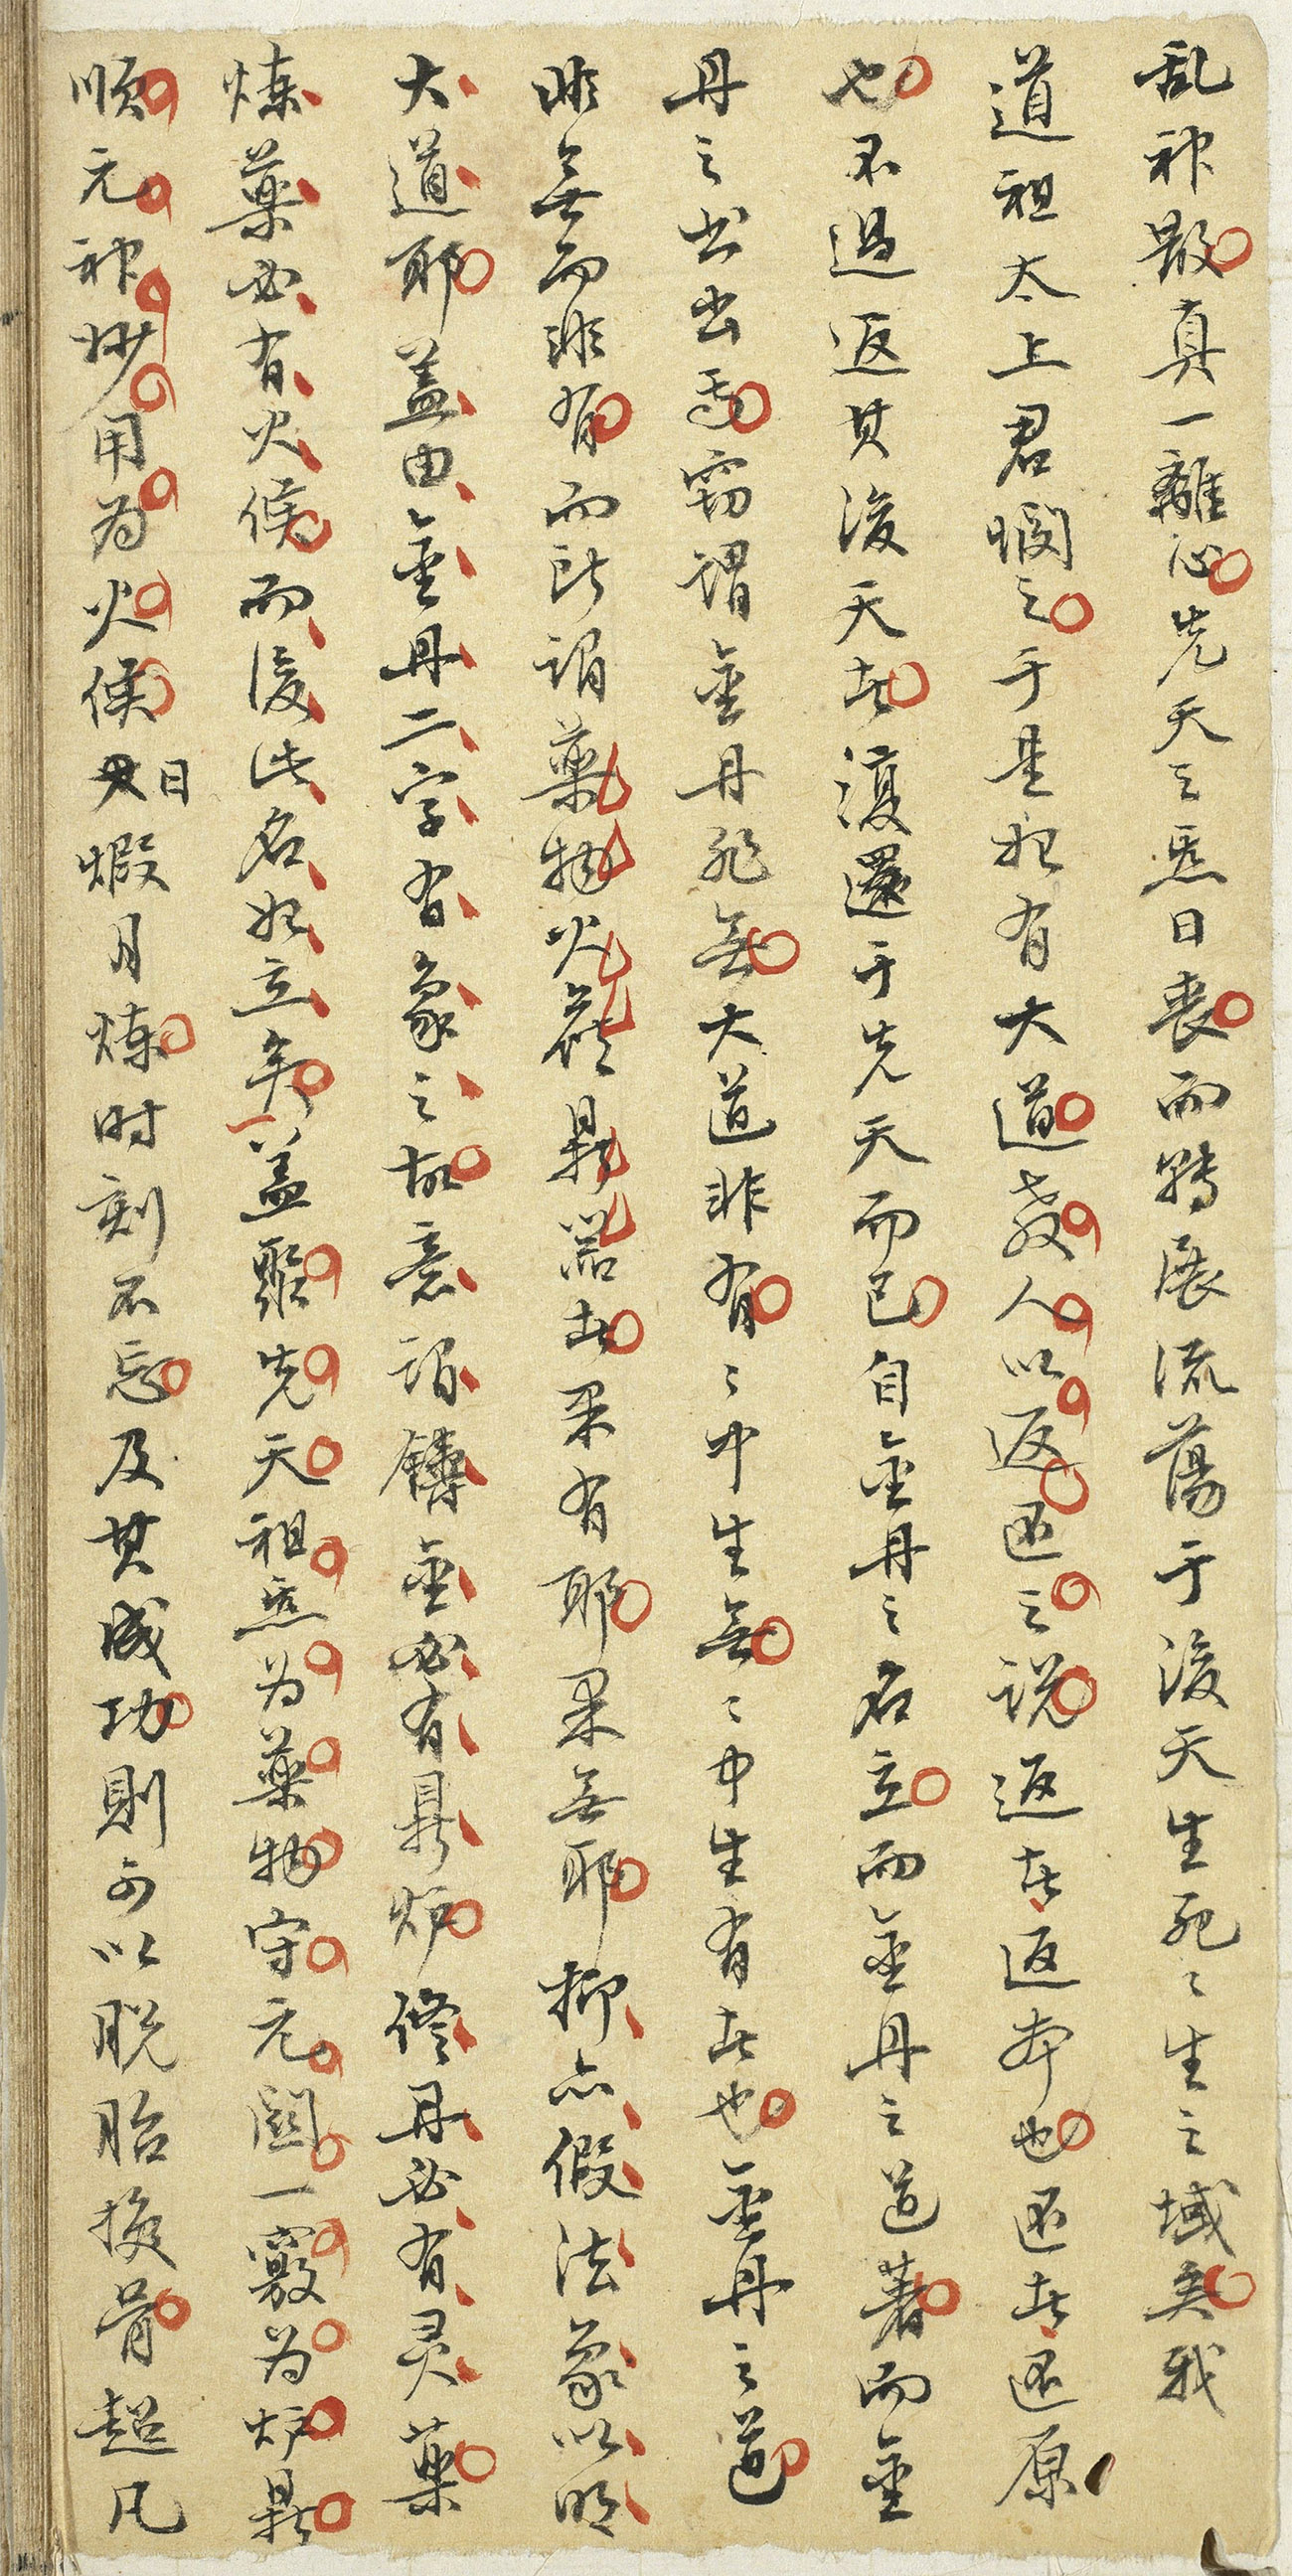 乱神散真一離心先天之炁日丧而轉展流蕩于後天生死〻生之域矣我
道祖太上君憫之于是始有大道教人以返还之説返者返本也还者还原
也不過返其後天者復還于先天而已自金丹之名立而金丹之道著而金
丹之书出焉窃謂金丹非無大道非有〻中生無〻中生有者也金丹之道
非無而非有而所謂藥物火候鼎器者果有耶果無耶抑亦假法象以明
大道耶蓋由金丹二字有象之故意謂鑄金必有鼎炉修丹必有灵藥
煉藥必有火候而後此名始立矣蓋聚先天祖炁为藥物守元関一竅为炉鼎
順元神妙用为火候日煅月煉时刻不忘及其成功則可以脱胎换骨超凡